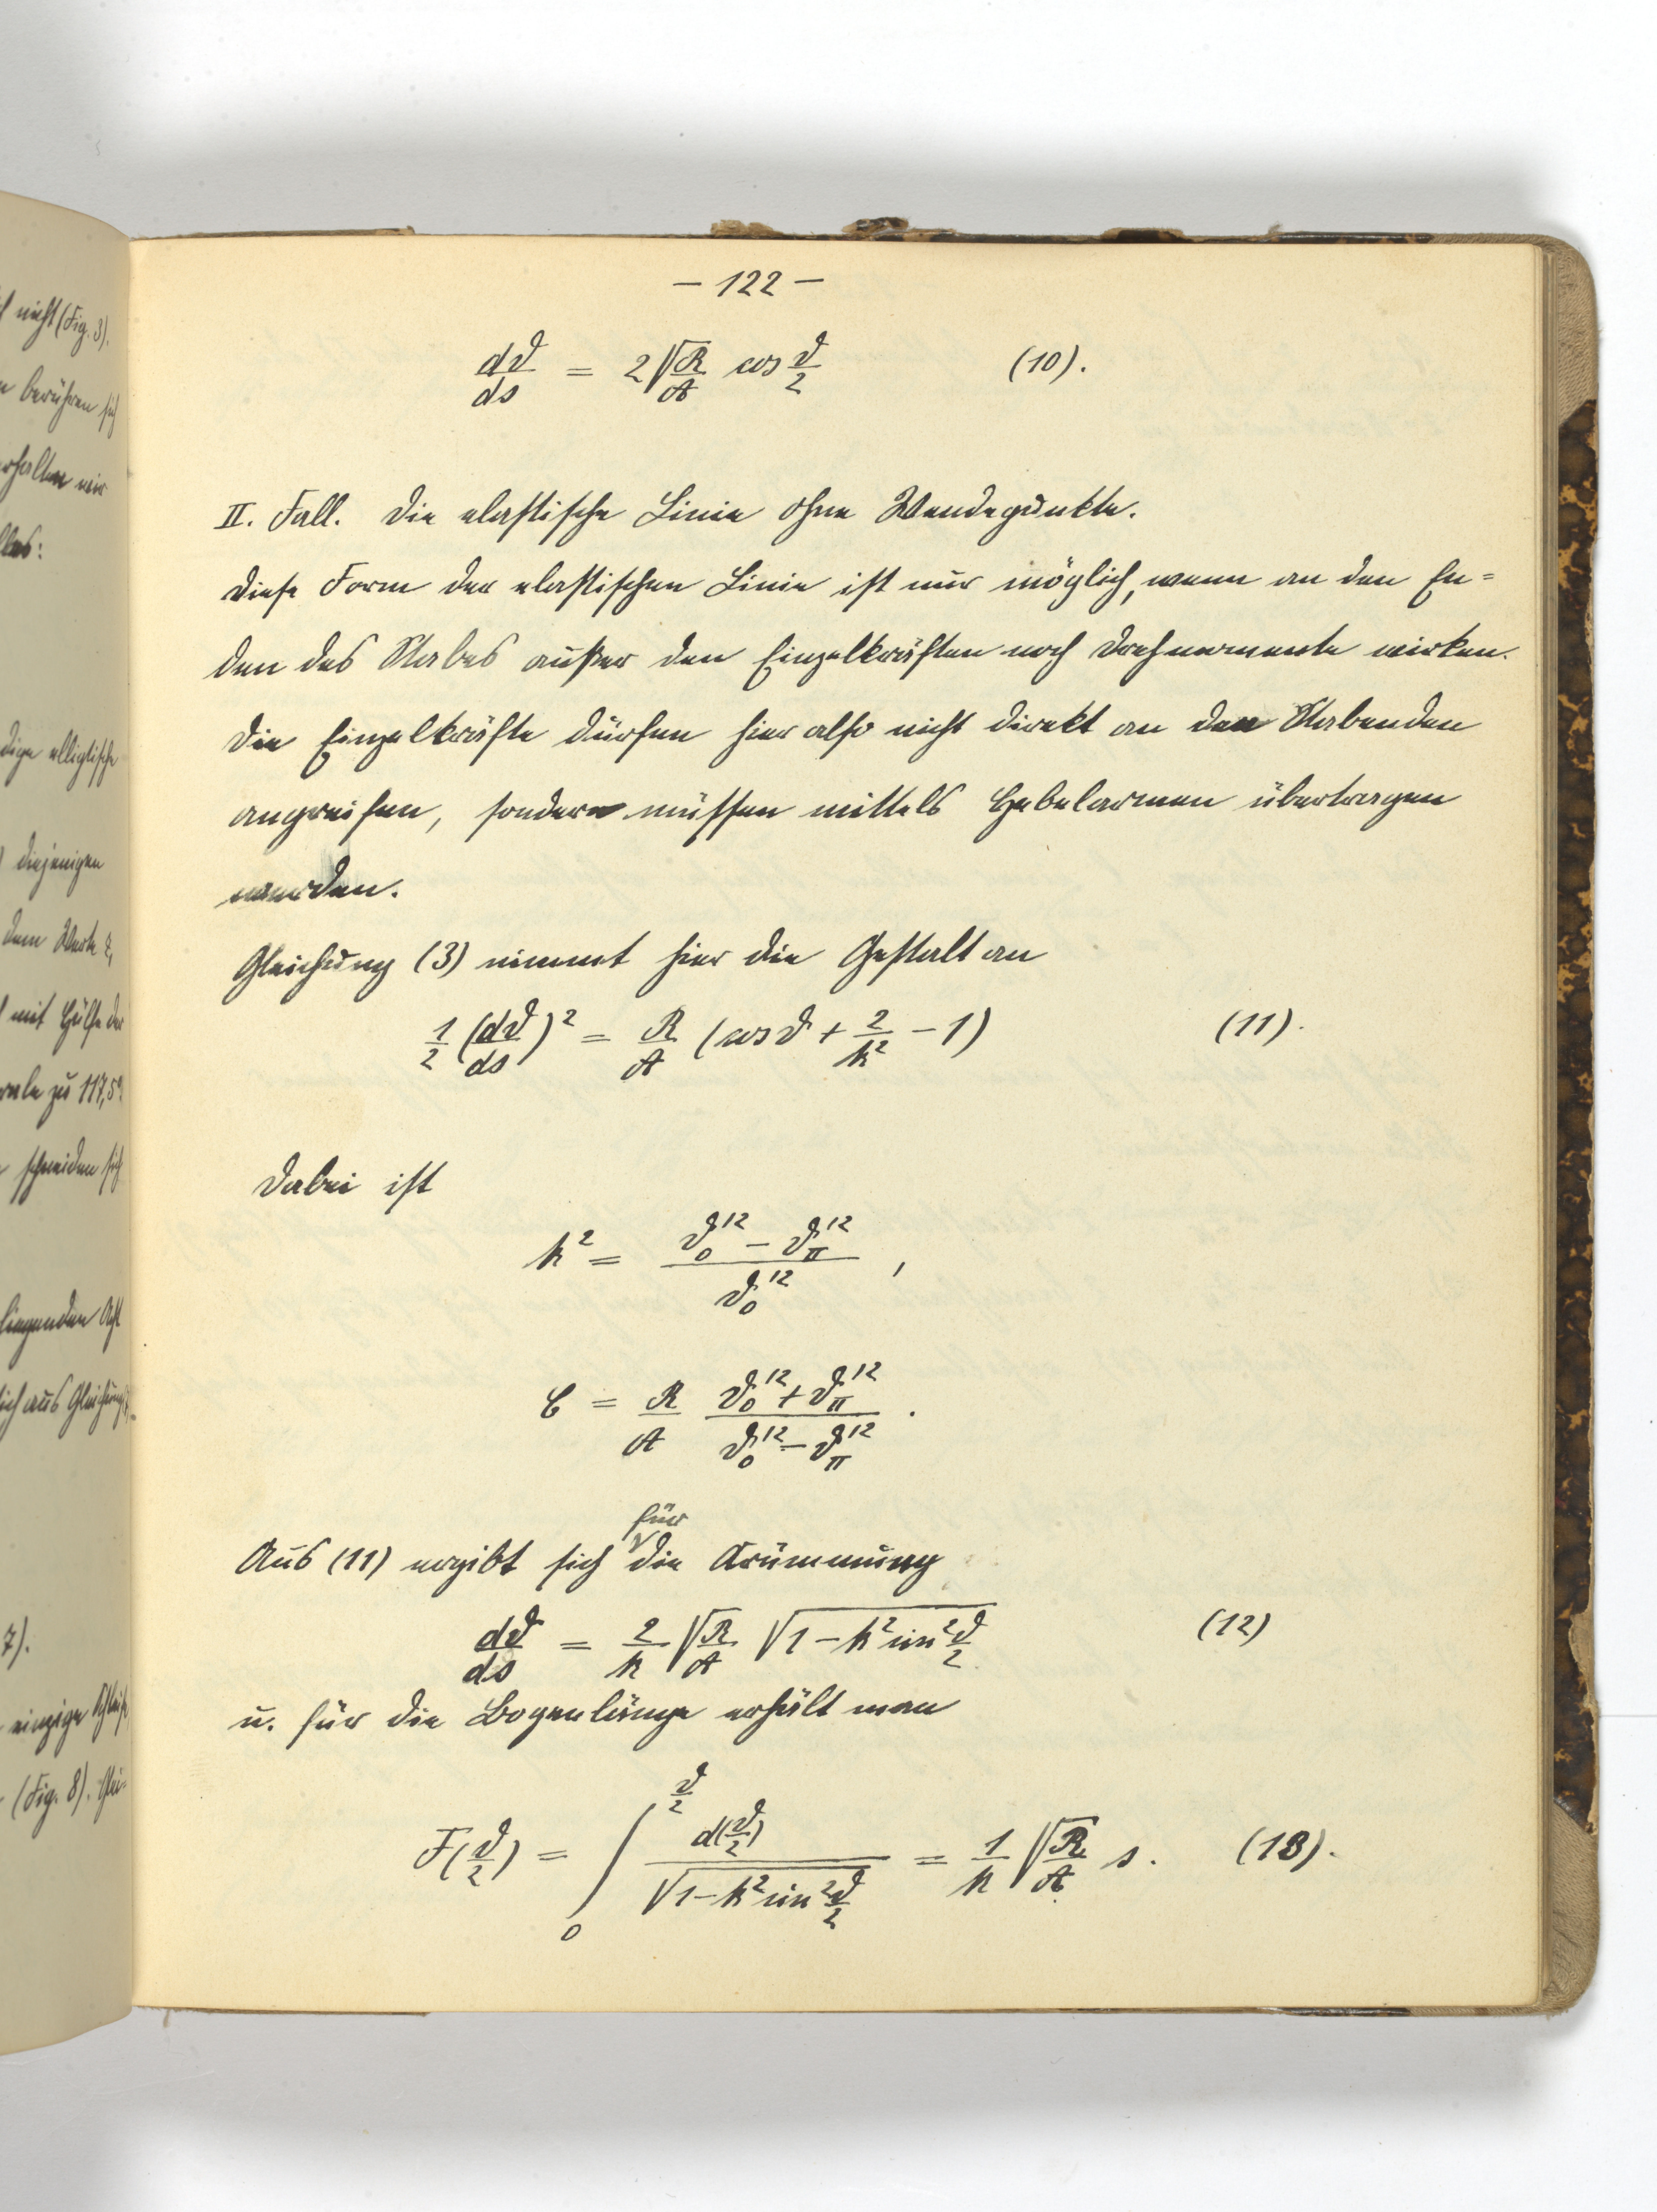 l nicht (Fig. 3).
berühren sich
erhalten wir
lles:
dige elliptische
diejenigen
dem Werte
mit Hülfe der
rale zu 117,5°
schneiden sich
liegenden Acht
lich aus Gleichung
7).
einzige Schleife
(Fig. 8). Glei-
– 122 –
dϑ/ds = 2 √(R/A) cos ϑ/2 (10).
II. Fall. Die elastische Linie ohne Wendepunkte.
Diese Form der elastischen Linie ist nur möglich, wenn an den En=
den des Stabes außer den Einzelkräften noch Drehmomente wirken.
Die Einzelkräfte dürfen hier also nicht direkt an den Stabenden
angreifen, sondern müssen mittels Hebelarmen übertragen
werden.
Gleichung (3) nimmt hier die Gestalt an
1/2 (dϑ/ds)² = R/A (cos ϑ + 2/k² − 1) (11).
Dabei ist
k² = (ϑ₀'² − ϑ_π'²)/ϑ₀'² ,
C = R/A (ϑ₀'² + ϑ_π'²)/(ϑ₀'² − ϑ_π'²) .
Aus (11) ergibt sich für die Krümmung
dϑ/ds = 2/k √(R/A) √(1 − k² sin² ϑ/2) (12)
u. für die Bogenlänge erhält man
F(ϑ/2) = ∫₀^(ϑ/2) d(ϑ/2)/√(1 − k² sin² ϑ/2) = 1/k √(R/A) s. (13).